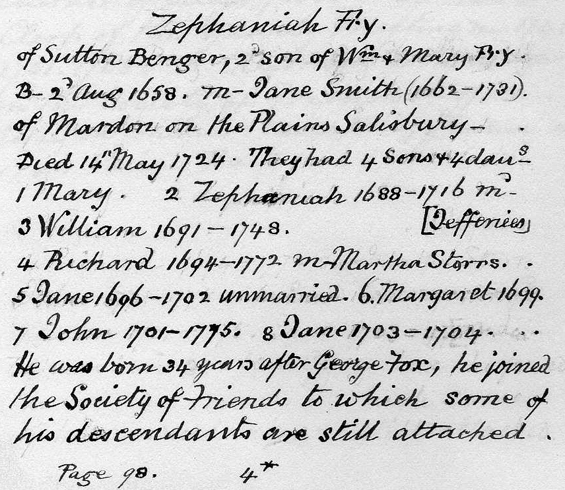 Zephaniah Fry.
of Sutton Benger, 2d son of Wm & Mary Fry.
B- 2d Aug 1658. m- Jane Smith (1662-1731).
of Mardon on the Plains Salisbury- .
Died 14th May 1724. They had 4 Sons & 4 daus
1 Mary. 2 Zephaniah 1688-1716 md-
3 William 1691-1748. [Jefferies]
4 Richard 1694-1772 m-Martha Storrs. .
5 Jane 1696-1702 unmarried. 6. Margaret 1699.
7 John 1701-1775. 8 Jane 1703-1704. . .
He was born 34 years after George Fox, he joined
the Society of Friends to which some of
his descendants are still attached .
Page 98. 4*